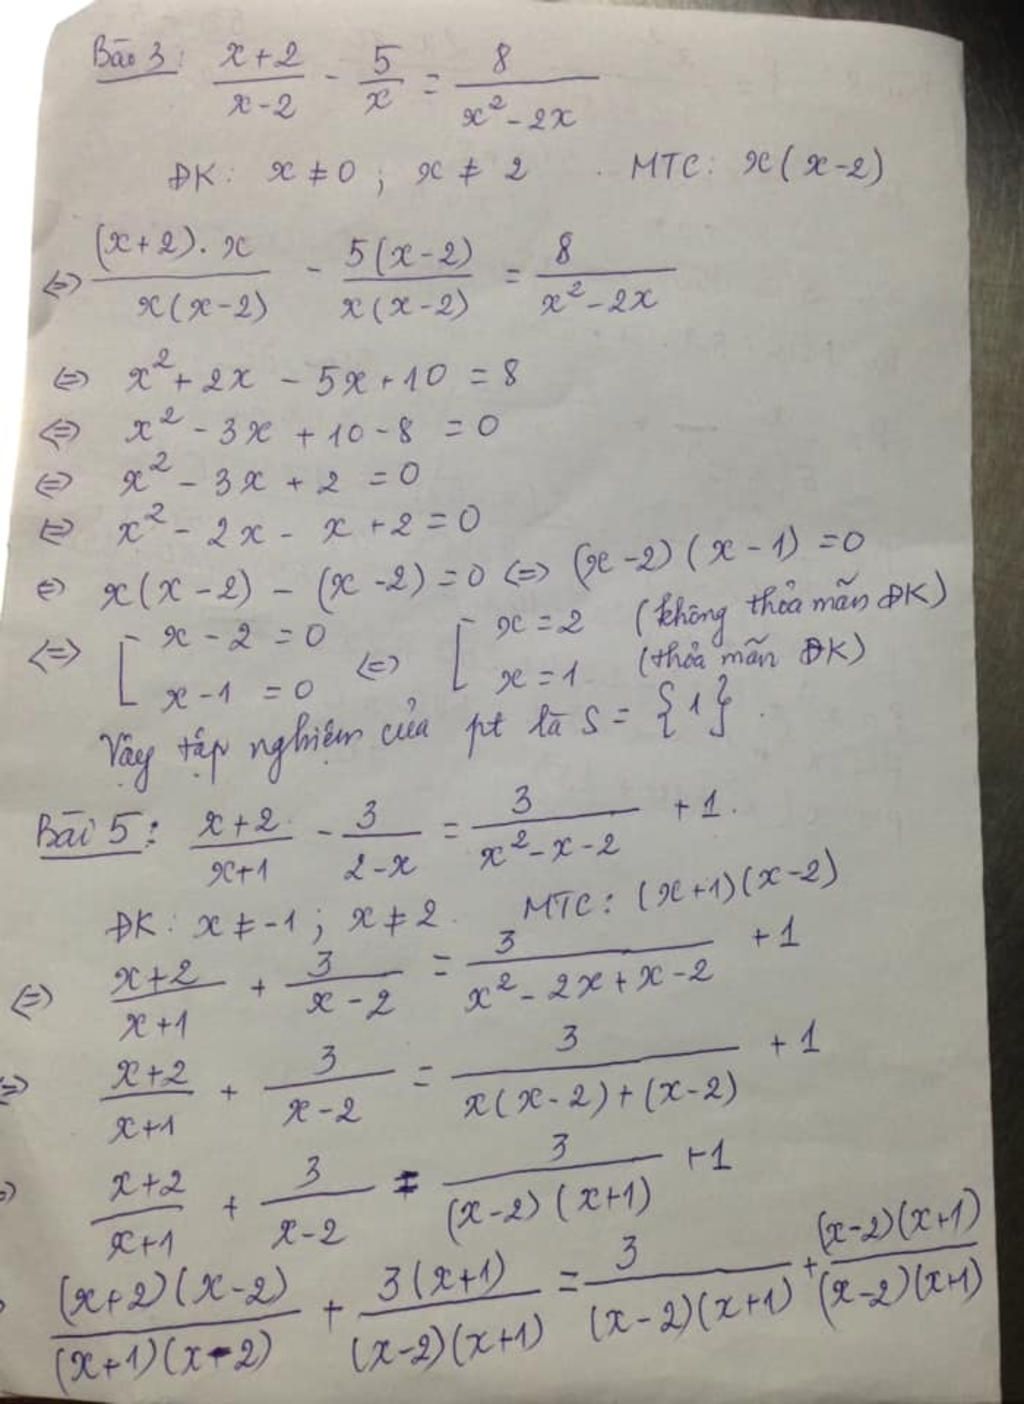 Bài 3: (x+2)/(x-2) - 5/x = 8/(x²-2x)
ĐK: x ≠ 0 ; x ≠ 2 . MTC: x(x-2)
⇔ ((x+2).x)/(x(x-2)) - (5(x-2))/(x(x-2)) = 8/(x²-2x)
⇔ x²+2x - 5x+10 = 8
⇔ x² - 3x + 10-8 = 0
⇔ x² - 3x + 2 = 0
⇔ x² - 2x - x +2 = 0
⇔ x(x-2) - (x-2) = 0 ⇔ (x-2)(x-1) = 0
⇔ [ x-2 = 0 ⇔ [ x = 2 (không thỏa mãn ĐK)
x-1 = 0 x = 1 (thỏa mãn ĐK)
Vậy tập nghiệm của pt là S = {1}.
Bài 5: (x+2)/(x+1) - 3/(2-x) = 3/(x²-x-2) + 1.
ĐK: x ≠ -1 ; x ≠ 2. MTC: (x+1)(x-2)
⇔ (x+2)/(x+1) + 3/(x-2) = 3/(x²-2x+x-2) + 1
⇔ (x+2)/(x+1) + 3/(x-2) = 3/(x(x-2)+(x-2)) + 1
⇔ (x+2)/(x+1) + 3/(x-2) = 3/((x-2)(x+1)) + 1
⇔ ((x+2)(x-2))/((x+1)(x-2)) + (3(x+1))/((x-2)(x+1)) = 3/((x-2)(x+1)) + ((x-2)(x+1))/((x-2)(x+1))